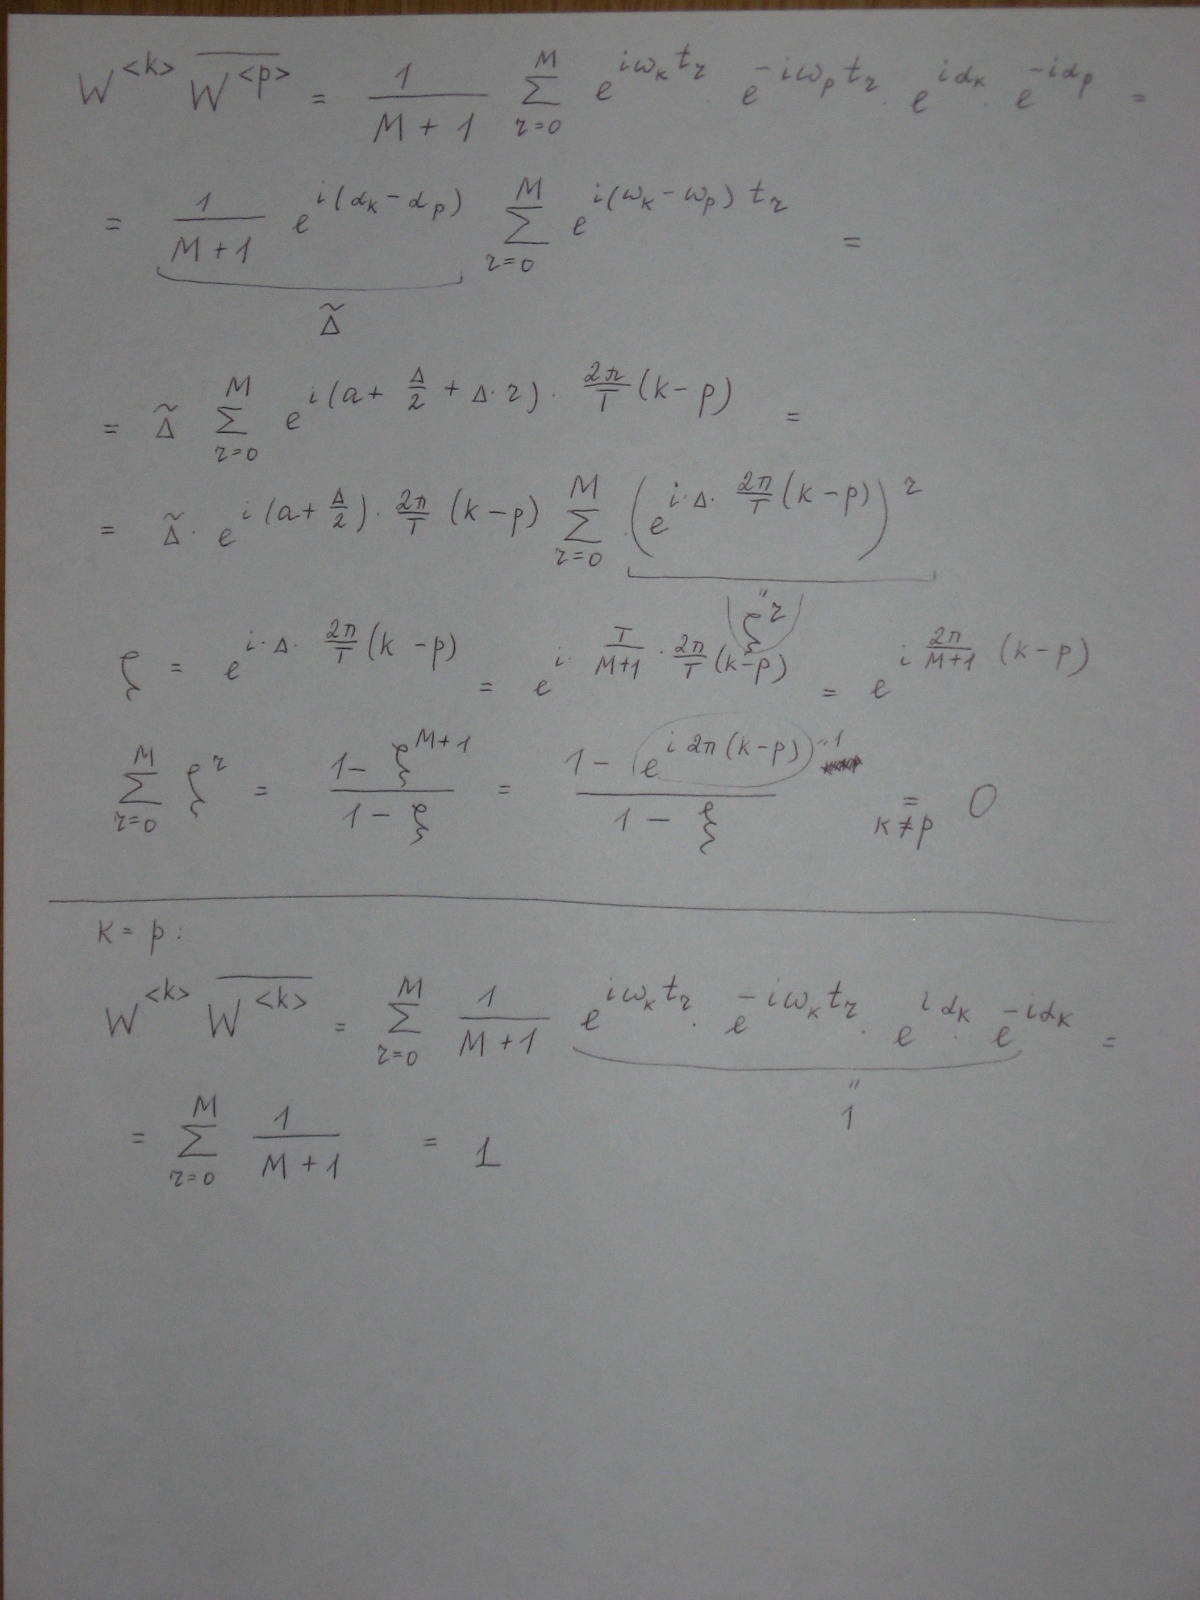 W^{<k>} \overline{W^{<p>}} = \frac{1}{M+1} \sum_{r=0}^{M} e^{iω_k t_r} · e^{-iω_p t_r} · e^{iα_k} · e^{-iα_p} =
= \underbrace{\frac{1}{M+1} e^{i(α_k - α_p)}}_{\tilde{Δ}} \sum_{r=0}^{M} e^{i(ω_k - ω_p) t_r} =
= \tilde{Δ} \sum_{r=0}^{M} e^{i(a + \frac{Δ}{2} + Δ·r) · \frac{2π}{T}(k-p)} =
= \tilde{Δ} · e^{i(a + \frac{Δ}{2}) · \frac{2π}{T}(k-p)} \sum_{r=0}^{M} \underbrace{(e^{i·Δ· \frac{2π}{T}(k-p)})^r}_{" ξ^r}
ξ = e^{i·Δ· \frac{2π}{T}(k-p)} = e^{i· \frac{T}{M+1} · \frac{2π}{T}(k-p)} = e^{i \frac{2π}{M+1} (k-p)}
\sum_{r=0}^{M} ξ^r = \frac{1 - ξ^{M+1}}{1 - ξ} = \frac{1 - e^{i 2π(k-p)} "1}{1 - ξ} =_{k≠p} 0
k = p :
W^{<k>} \overline{W^{<k>}} = \sum_{r=0}^{M} \frac{1}{M+1} \underbrace{e^{iω_k t_r} · e^{-iω_k t_r} · e^{iα_k} · e^{-iα_k}}_{" 1} =
= \sum_{r=0}^{M} \frac{1}{M+1} = 1